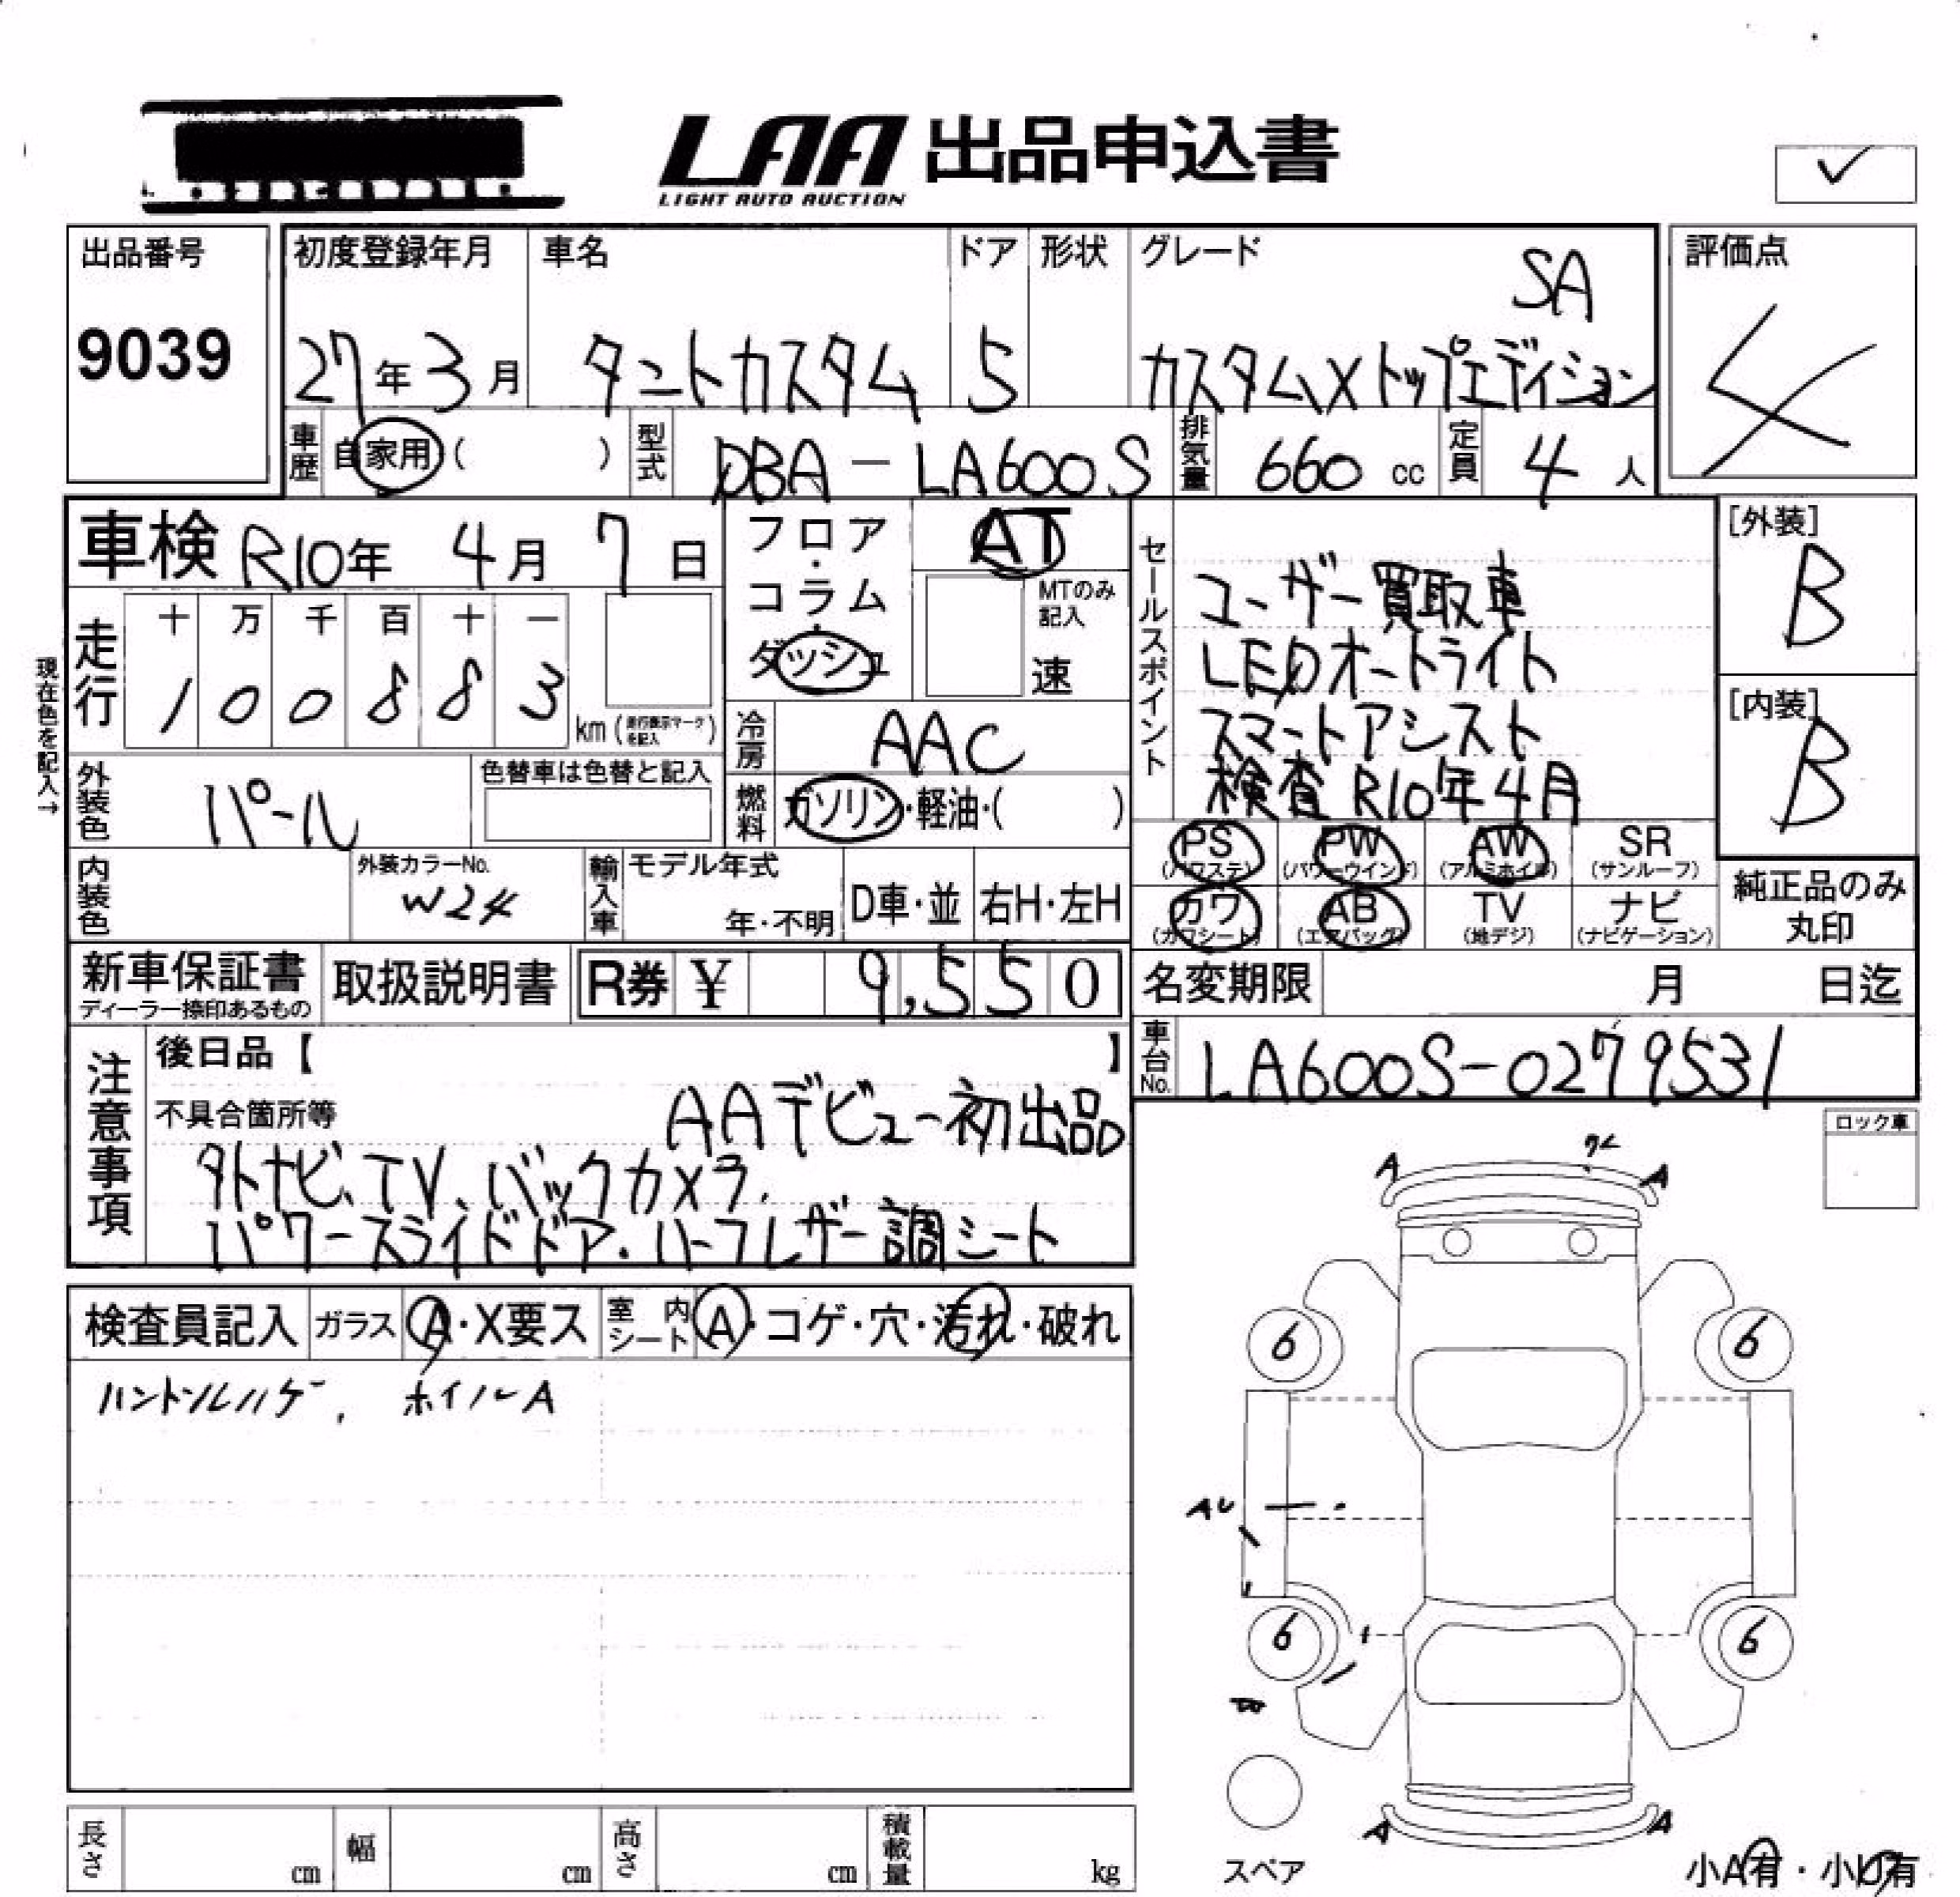 LAA 出品申込書
LIGHT AUTO AUCTION
出品番号
9039
初度登録年月
27年3月
車名
タントカスタム
ドア
5
形状
グレード
SA
カスタムXトップエディション
評価点
4
車歴
自家用( )
型式
DBA-LA600S
排気量
660 cc
定員
4 人
車検 R10年 4月 7日
フロア・コラム・ダッシュ
AT
MTのみ記入
速
セールスポイント
ユーザー買取車
LEDオートライト
スマートアシスト
検査R10年4月
[外装]
B
[内装]
B
現在色を記入→
走行
十 万 千 百 十 一
1 0 0 8 8 3
km(走行表示マークを記入)
冷房
AAC
外装色
パール
色替車は色替と記入
燃料
ガソリン・軽油・( )
PS (パワステ)
PW (パワーウインド)
AW (アルミホイル)
SR (サンルーフ)
カワ (カワシート)
AB (エアバッグ)
TV (地デジ)
ナビ (ナビゲーション)
純正品のみ丸印
内装色
外装カラーNo.
W24
輸入車
モデル年式
年・不明
D車・並
右H・左H
新車保証書
ディーラー捺印あるもの
取扱説明書
R券 ¥ 9,550
名変期限 月 日迄
車台No.
LA600S-0279531
注意事項
後日品【 】
不具合箇所等
AAデビュー初出品
外ナビ、TV、バックカメラ、
パワースライドドア、ハーフレザー調シート
ロック車
検査員記入
ガラス
A・X要ス
室内シート
A・コゲ・穴・汚れ・破れ
ハンドルハゲ、ホイルA
A
A
6
6
AU
6
6
A
A
スペア
小A有・小U有
長さ cm
幅 cm
高さ cm
積載量 kg